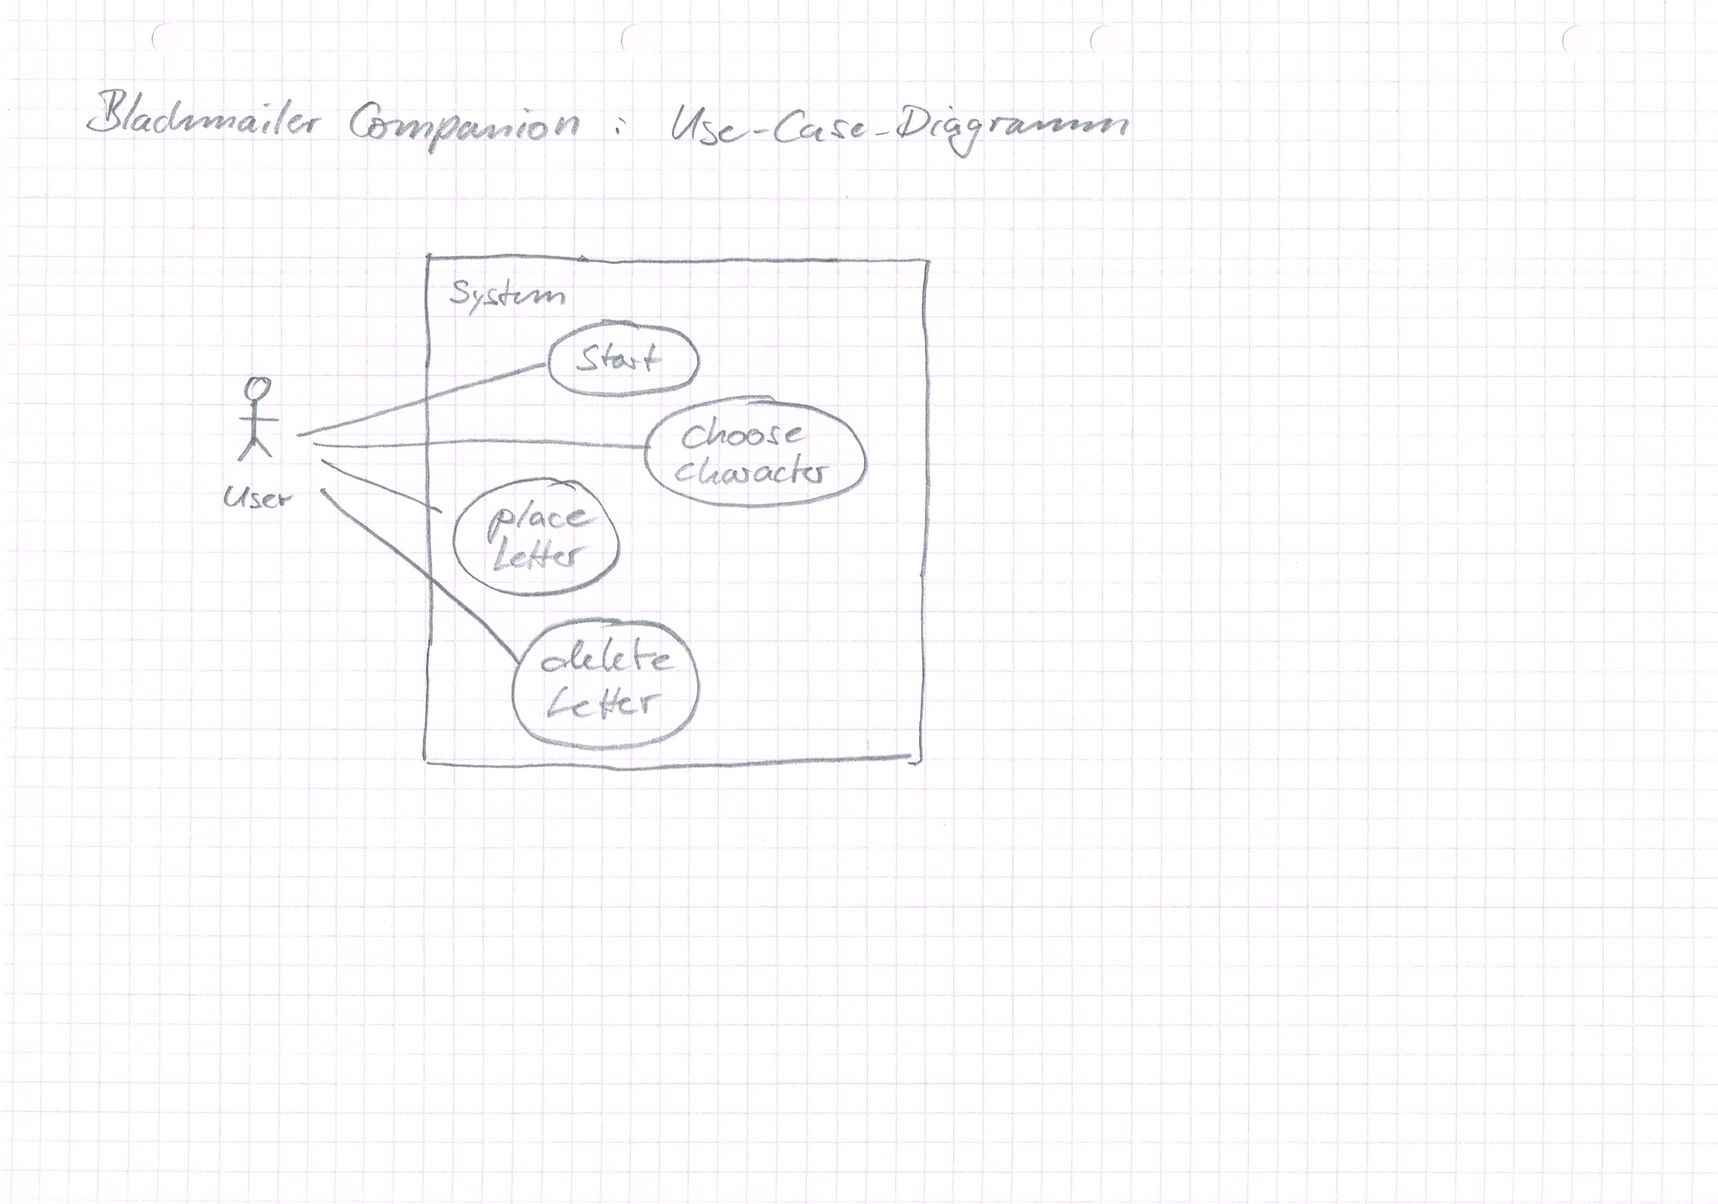 Blackmailer Companion : Use-Case-Diagramm
System
Start
choose
character
User
place
Letter
delete
Letter